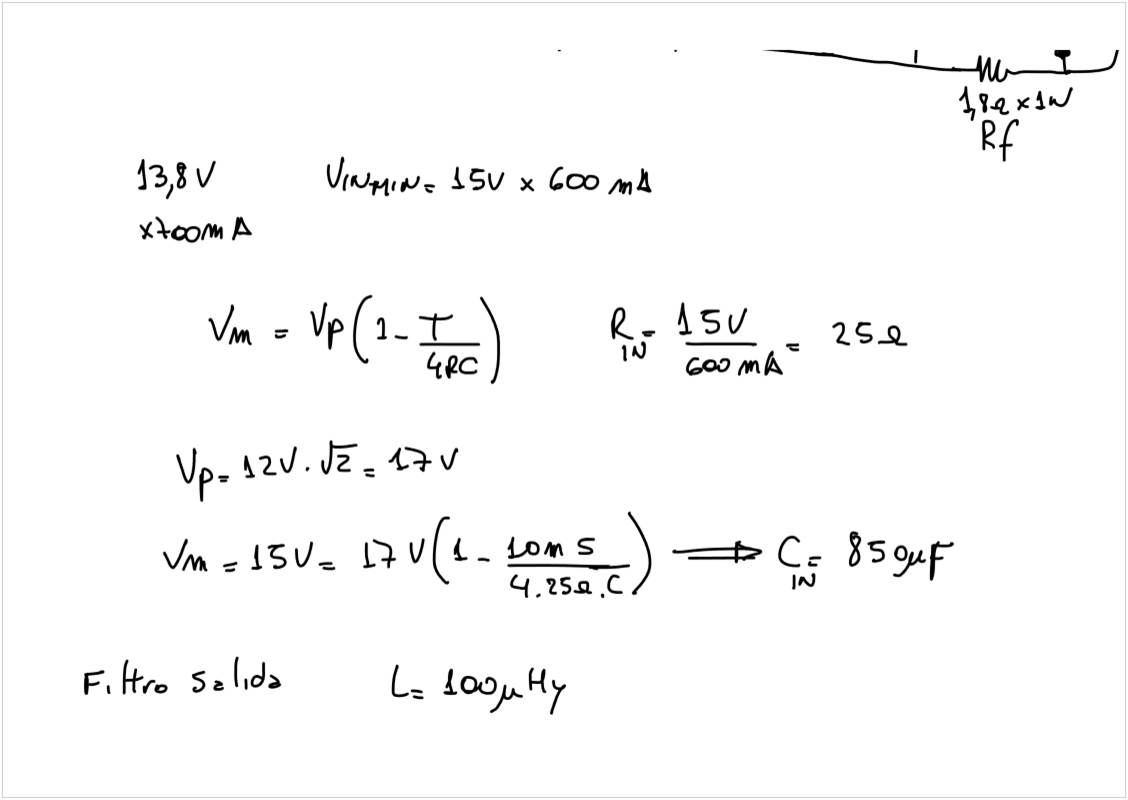 1,8Ω x 1W
Rf
13,8V   VINMIN = 15V x 600 mA
x700mA
Vm = Vp(1 - T/4RC)   RIN = 15V/600 mA = 25Ω
Vp = 12V . √2 = 17V
Vm = 15V = 17V(1 - 10mS/4.25Ω.C) ⟹ CIN = 850µF
Filtro salida   L = 100µHy